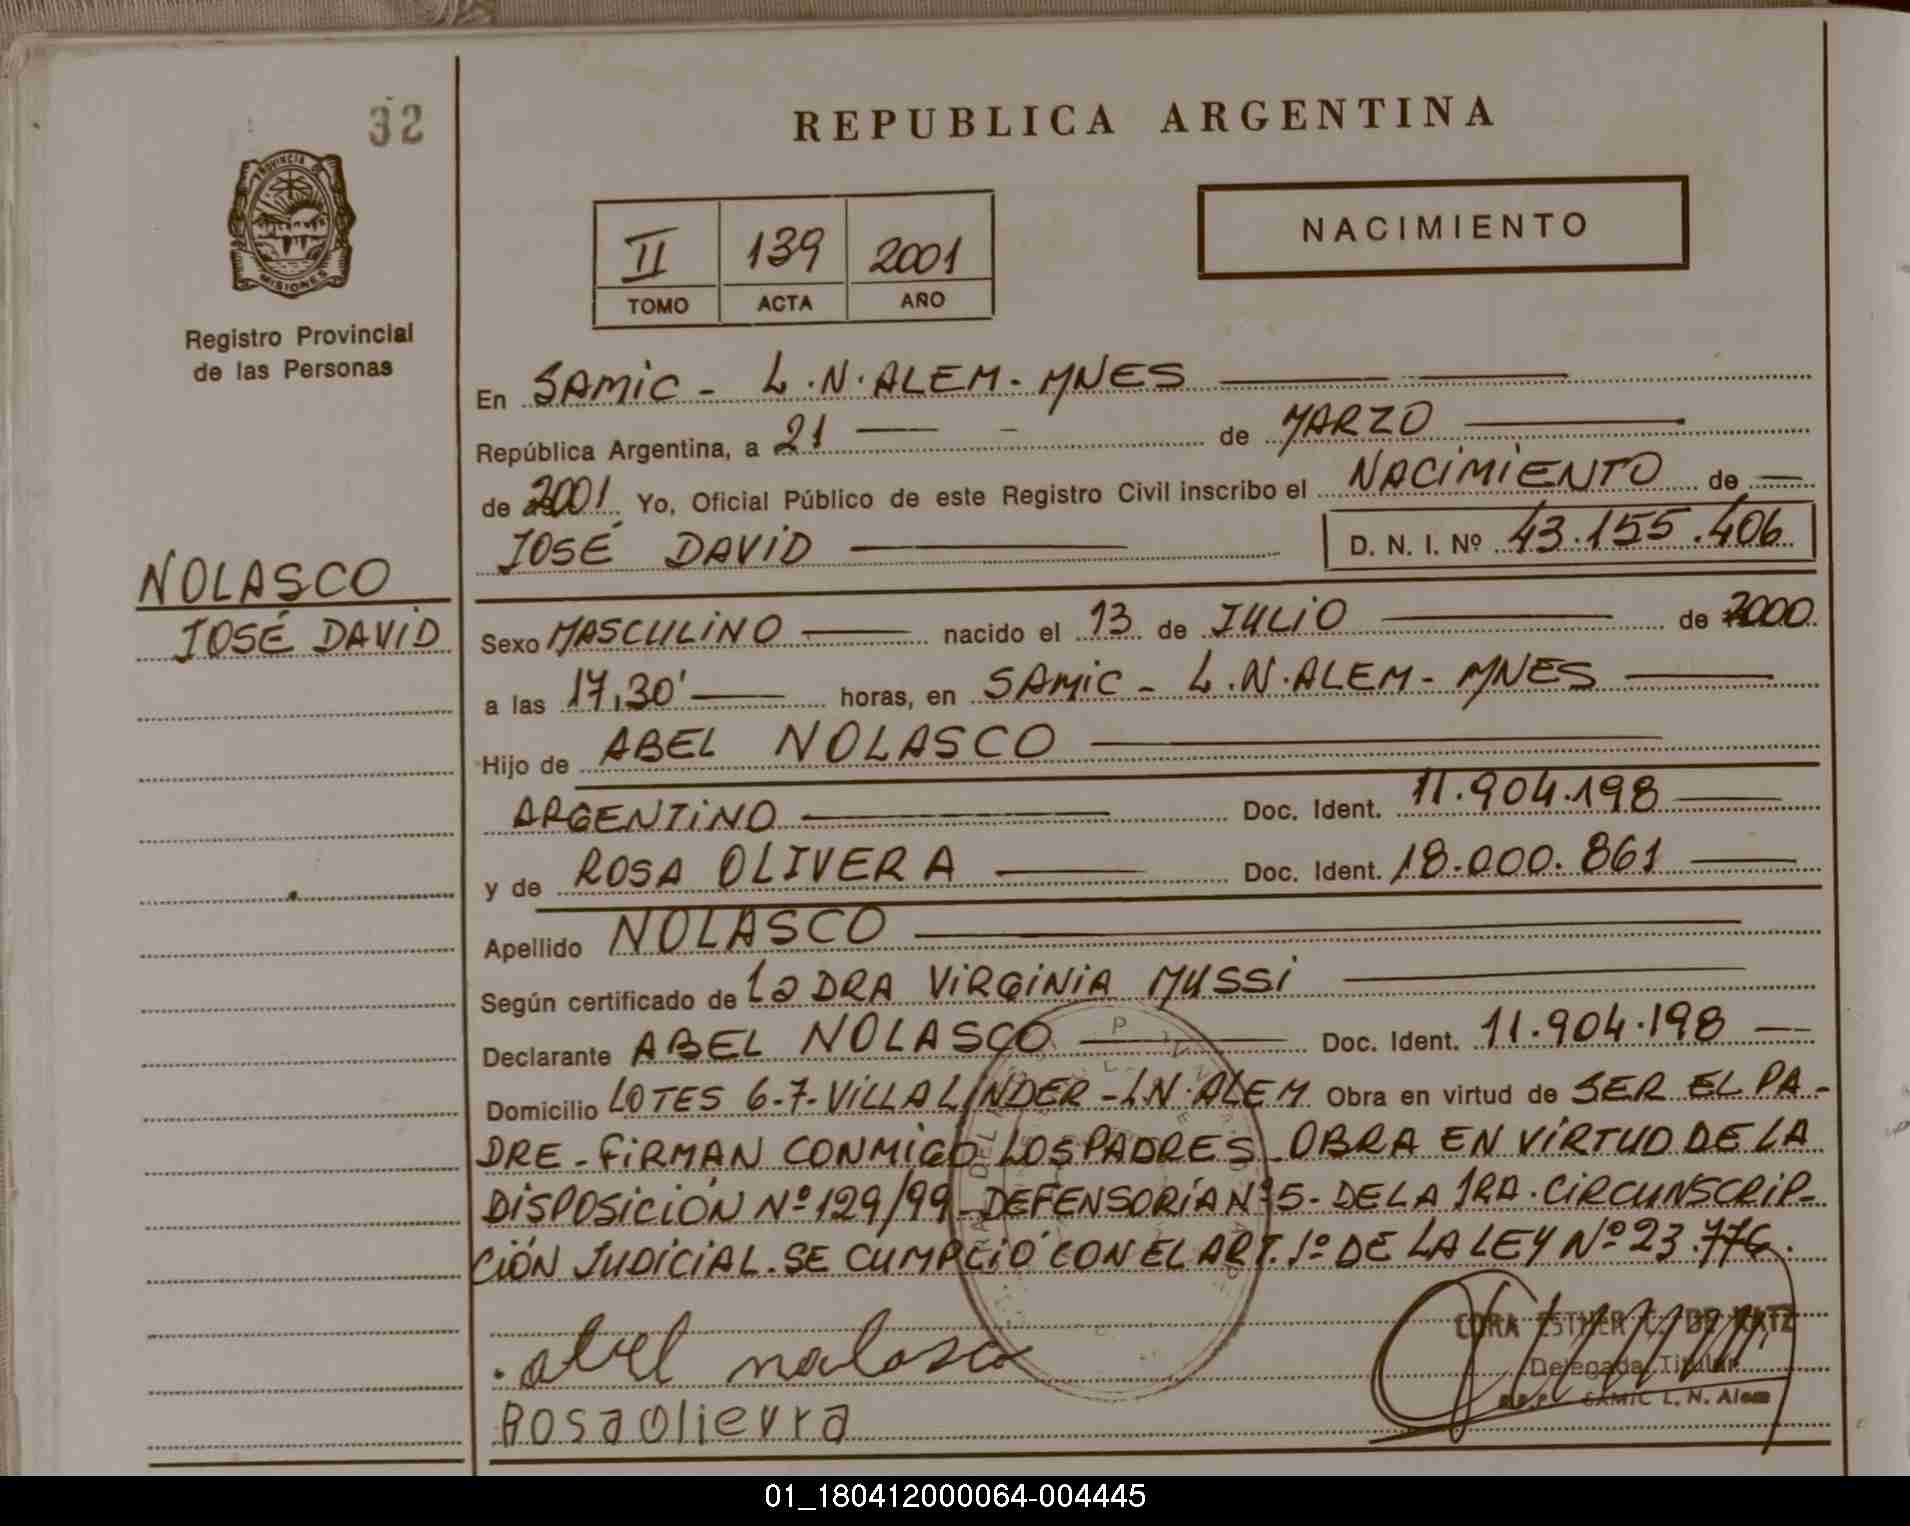 32
REPUBLICA ARGENTINA
PROVINCIA
MISIONES
NACIMIENTO
II 139 2001
TOMO ACTA AÑO
Registro Provincial
de las Personas
En SAMIC - L.N. ALEM - MNES
República Argentina, a 21 de MARZO
de 2001 Yo, Oficial Público de este Registro Civil inscribo el NACIMIENTO de
JOSÉ DAVID D. N. I. Nº 43.155.406
NOLASCO
JOSÉ DAVID
Sexo MASCULINO nacido el 13 de JULIO de 2000
a las 17,30' horas, en SAMIC - L.N. ALEM - MNES
Hijo de ABEL NOLASCO
ARGENTINO Doc. Ident. 11.904.198
y de ROSA OLIVERA Doc. Ident. 18.000.861
Apellido NOLASCO
Según certificado de la DRA VIRGINIA MUSSI
Declarante ABEL NOLASCO Doc. Ident. 11.904.198
Domicilio LOTES 6-7- VILLA LINDER - L.N. ALEM Obra en virtud de SER EL PA-
DRE - FIRMAN CONMIGO LOS PADRES - OBRA EN VIRTUD DE LA
DISPOSICIÓN Nº 129/99 - DEFENSORÍA Nº 5 - DE LA 1RA. CIRCUNSCRIP-
CIÓN JUDICIAL. SE CUMPLIÓ CON EL ART. 1º DE LA LEY Nº 23.776.
abel nolasco
Rosa Olievra
CORA ESTHER C. DE KATZ
Delegada Titular
R.P.P. SAMIC L. N. Alem
01_180412000064-004445